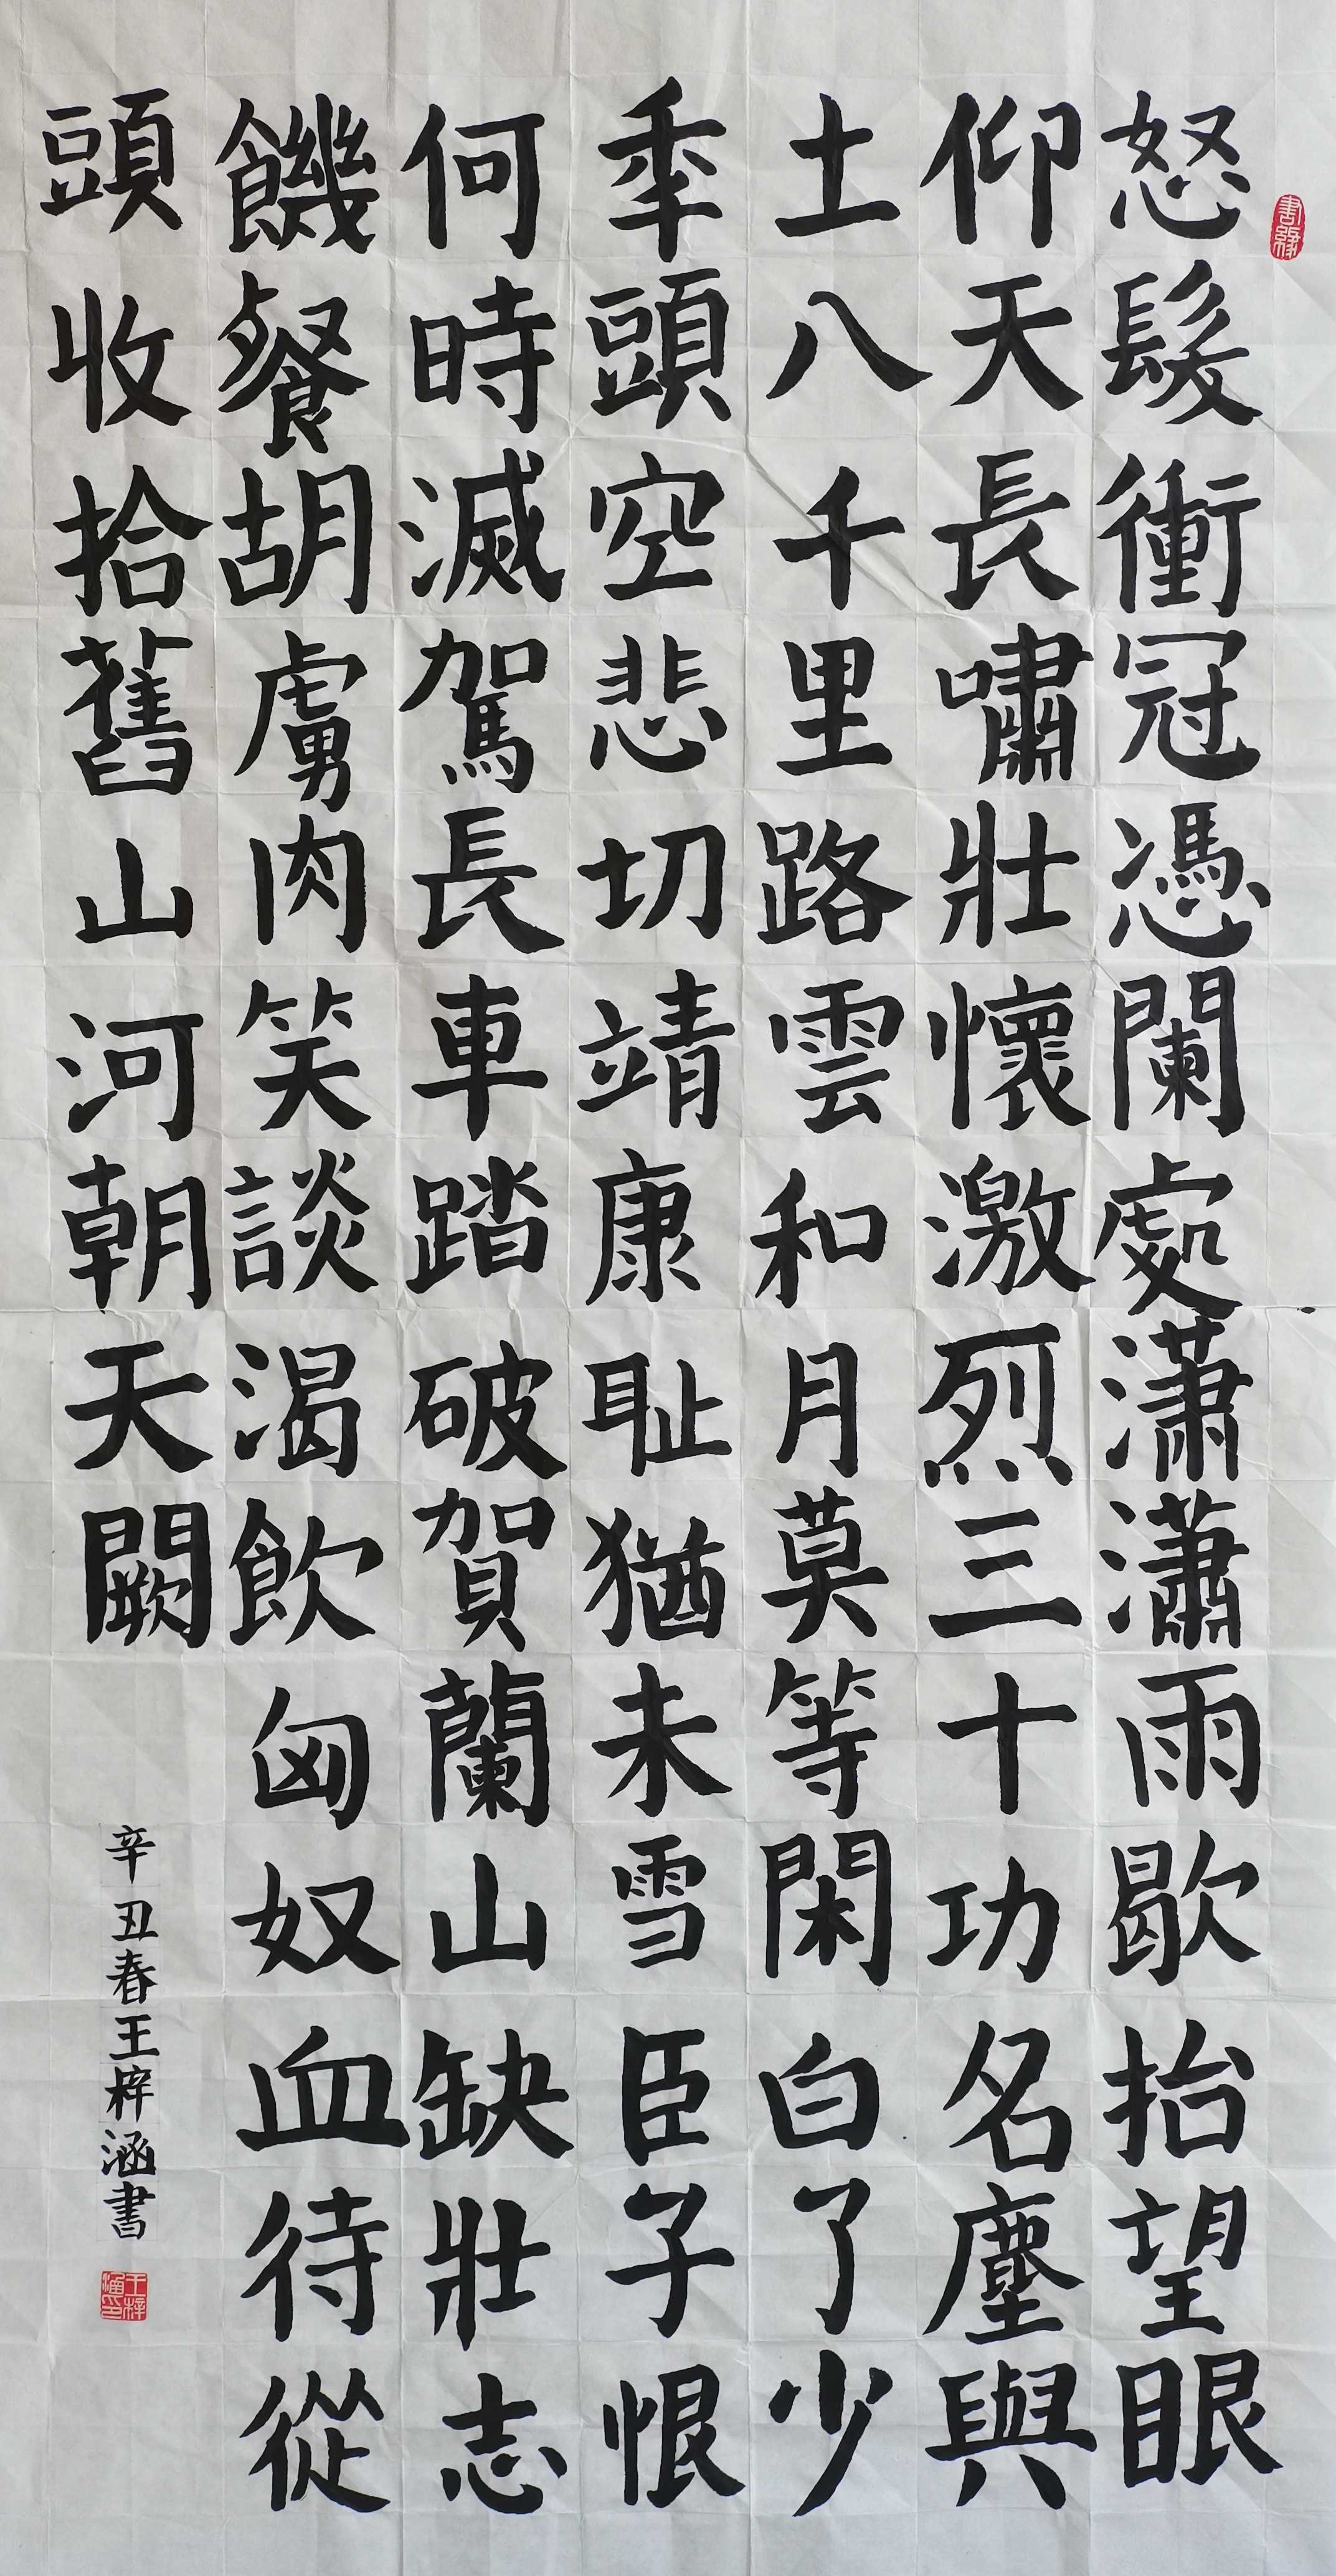 怒髮衝冠憑闌處瀟瀟雨歇抬望眼
仰天長嘯壯懷激烈三十功名塵與
土八千里路雲和月莫等閑白了少
秊頭空悲切靖康耻猶未雪臣子恨
何時滅駕長車踏破賀蘭山缺壯志
饑餐胡虜肉笑談渴飲匈奴血待從
頭收拾舊山河朝天闕
辛丑春王梓涵書
書緣
王梓涵印